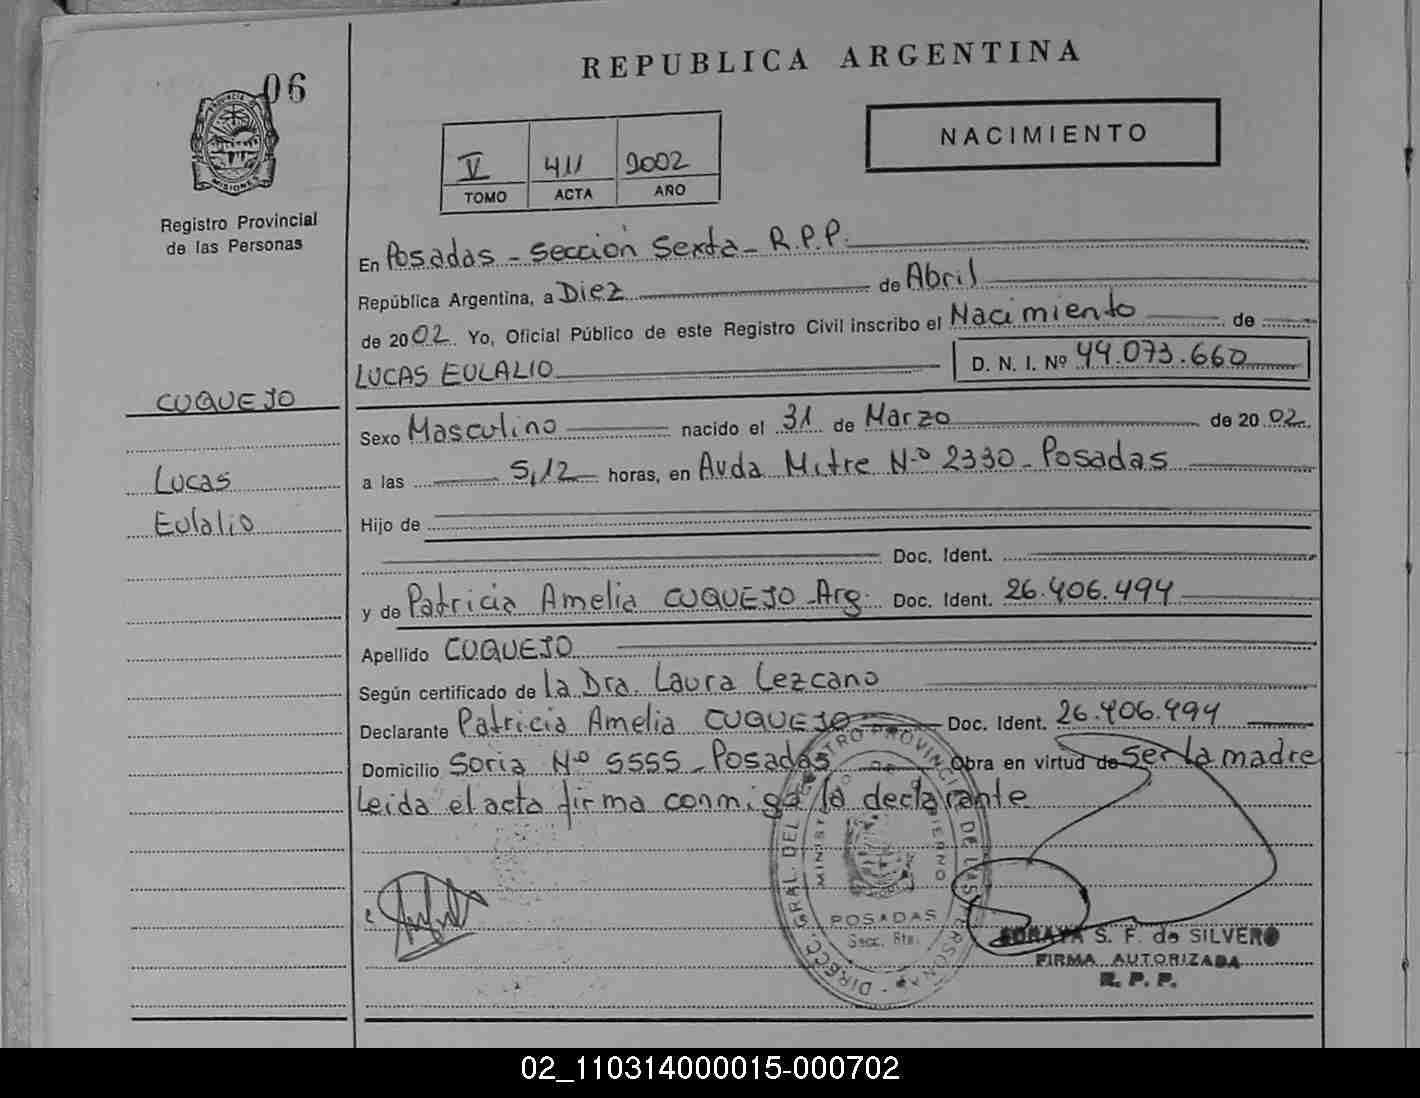 REPUBLICA ARGENTINA
06
PROVINCIA DE
MISIONES
Registro Provincial
de las Personas
V 411 2002
TOMO ACTA AÑO
NACIMIENTO
En Posadas - Sección Sexta - R.P.P.
República Argentina, a Diez de Abril
de 2002. Yo, Oficial Público de este Registro Civil inscribo el Nacimiento de
LUCAS EULALIO D. N. I. Nº 44.073.660
CUQUEJO
Lucas
Eulalio
Sexo Masculino nacido el 31 de Marzo de 2002.
a las 5,12 horas, en Avda Mitre Nº 2330 - Posadas
Hijo de
Doc. Ident.
y de Patricia Amelia CUQUEJO - Arg. Doc. Ident. 26.406.494
Apellido CUQUEJO
Según certificado de la Dra. Laura Lezcano
Declarante Patricia Amelia CUQUEJO Doc. Ident. 26.406.494
Domicilio Soria Nº 5555 - Posadas Obra en virtud de ser la madre
Leida el acta firma conmigo la declarante
POSADAS
Secc. 6ta.
SORAYA S. F. de SILVERO
FIRMA AUTORIZADA
R. P. P.
02_110314000015-000702